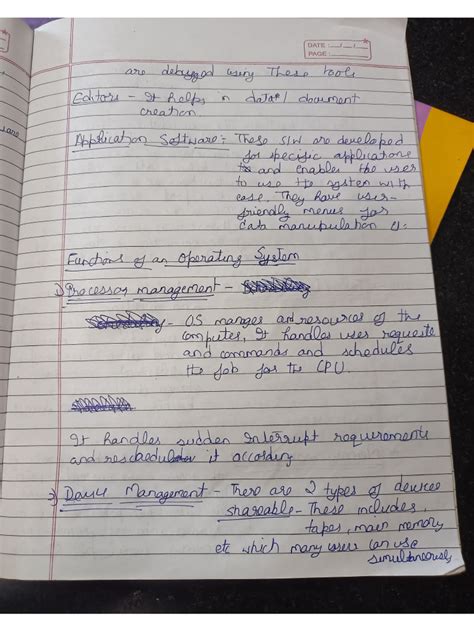 DATE: __/__/__
PAGE
are debugged using These tools
Editors - It helps in data/document
creation.
Application Software:- These S/W are developed
for specific applications
and enables the user
to use the system with
ease. They have user-
friendly menus for
data manipulation
Functions of an Operating System
1) Processor management -
- OS manges and resources of the
computer, It handles user requests
and commands and schedules
the job for the CPU
It handles sudden Interrupt requirements
and reschedules it according
2) Device Management - There are 2 types of devices
shareable - These includes,
tapes, main memory
etc which many users can use
simultaneously